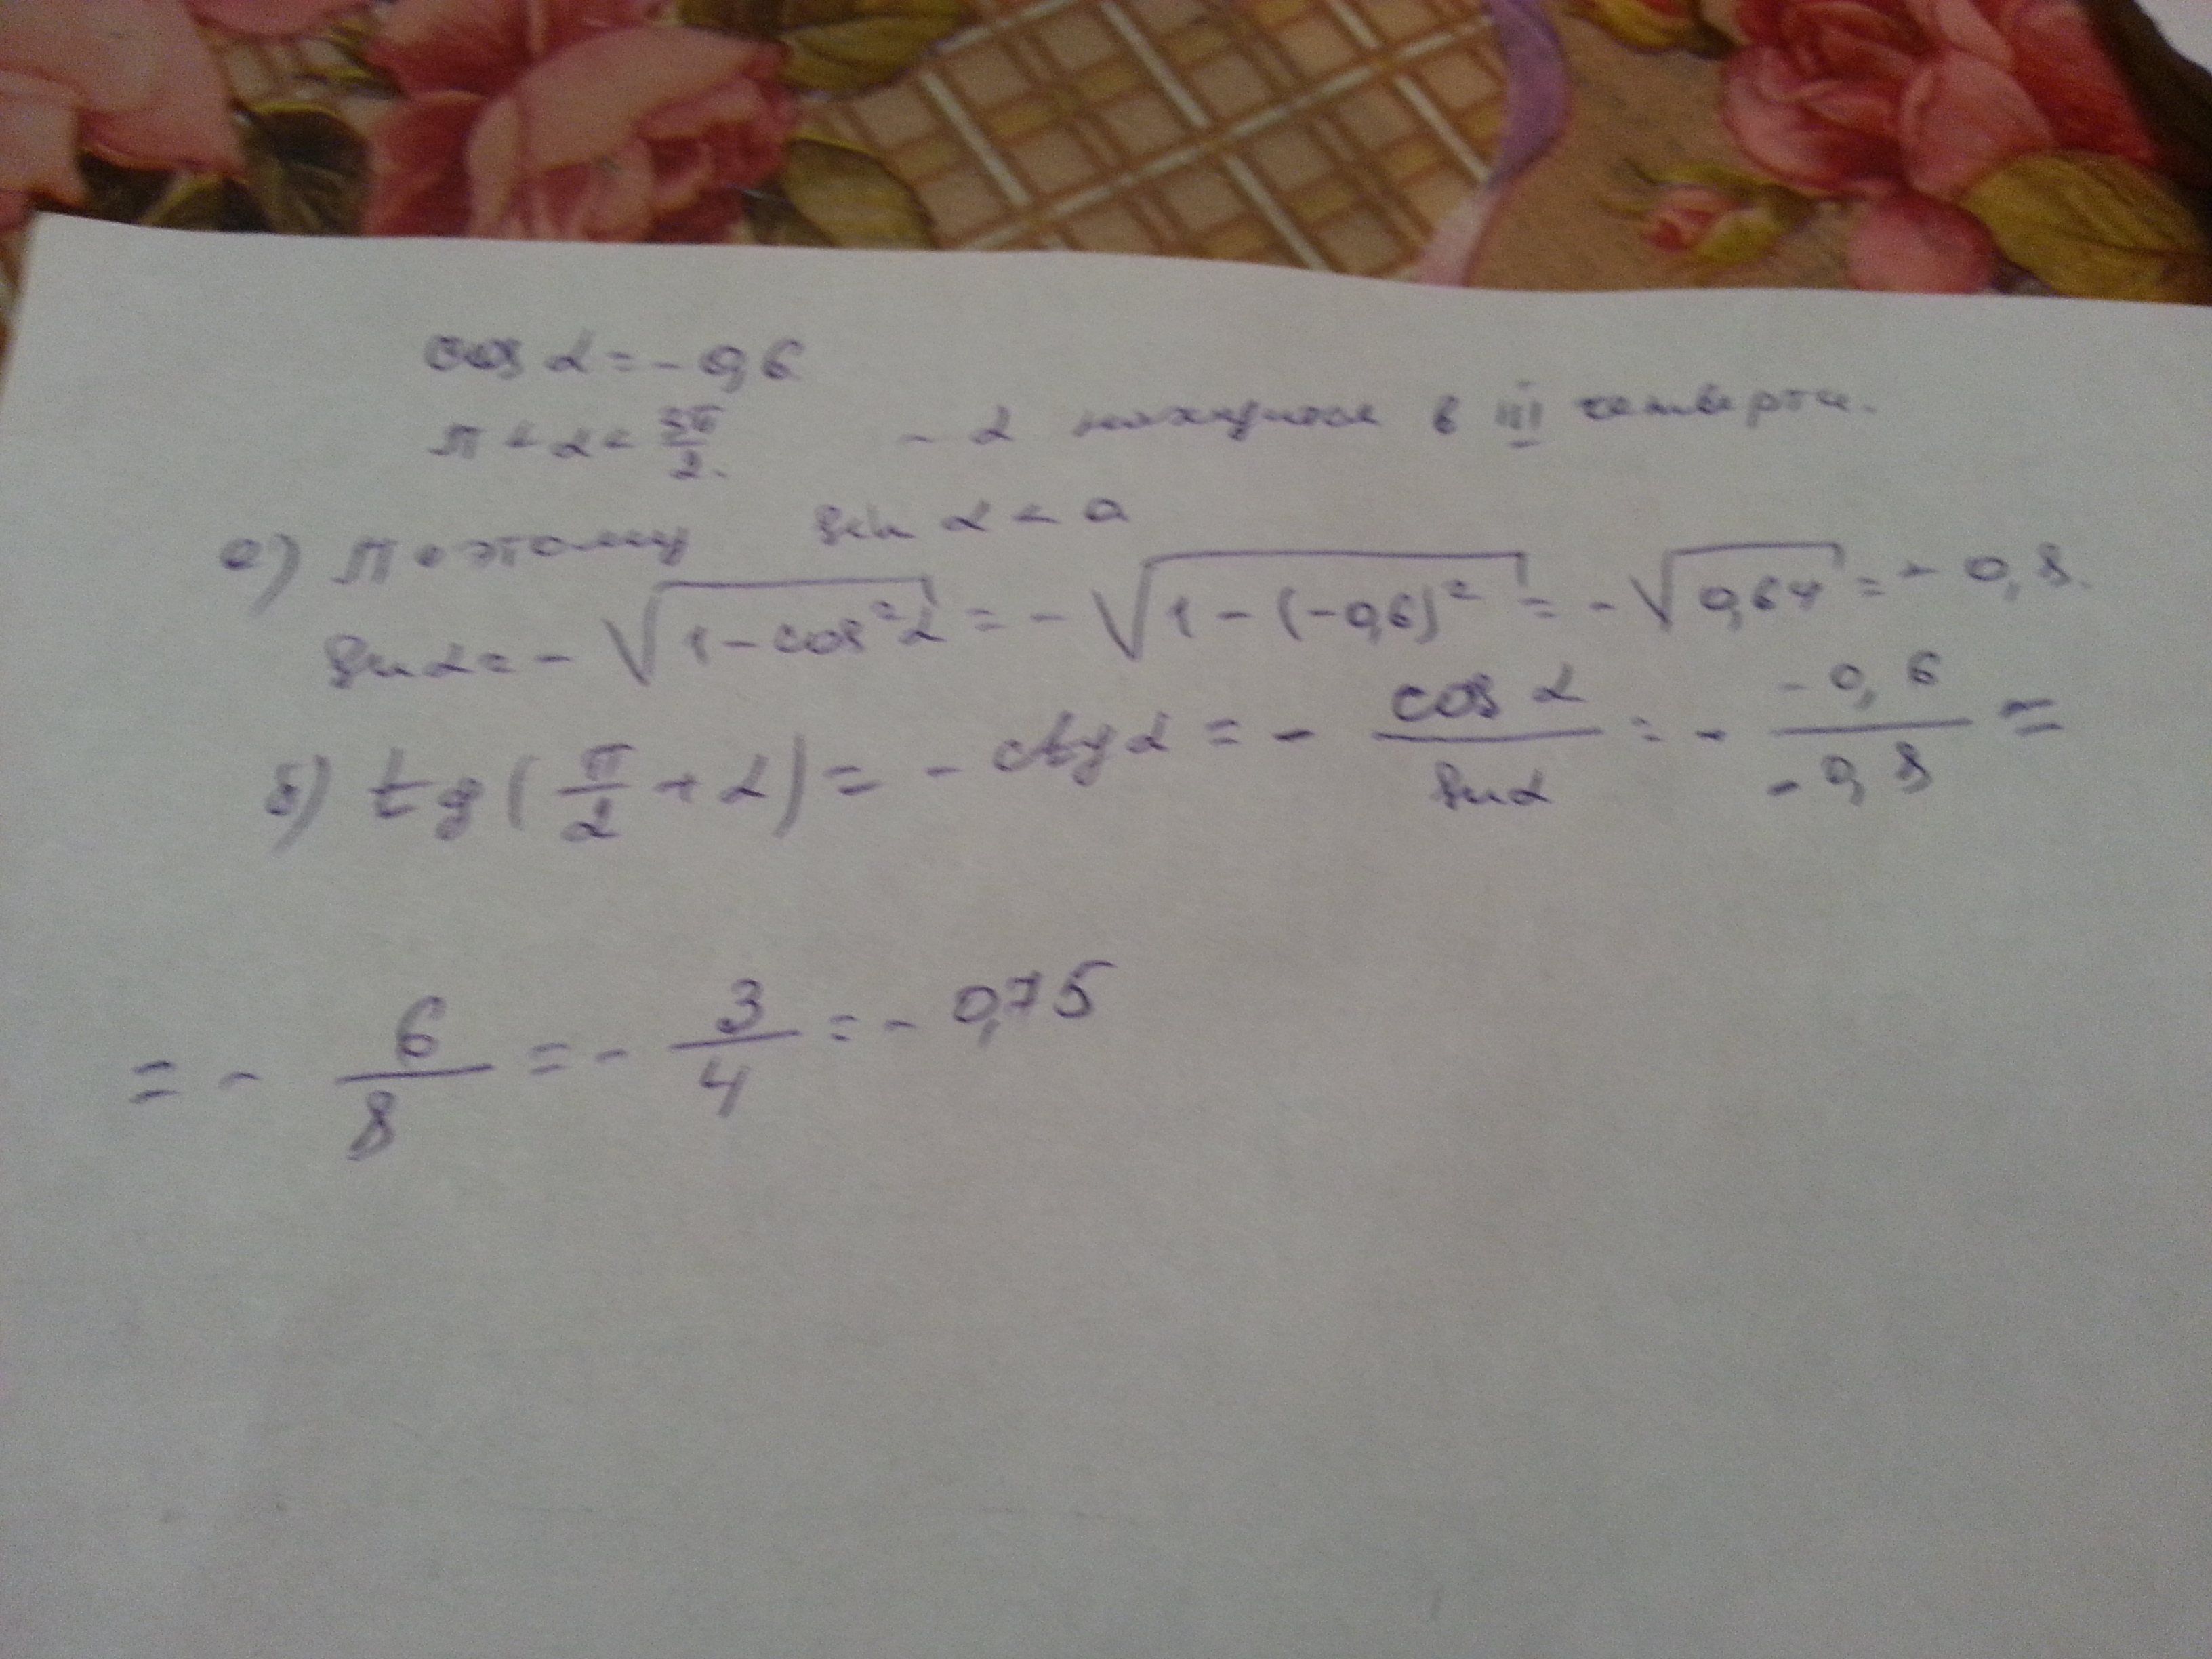 cos α = - 0,6
π < α < 3π/2. - α находится в III четверти.
а) Поэтому sin α < 0
sin α = - √(1 - cos²α) = - √(1 - (-0,6)²) = - √0,64 = - 0,8.
б) tg(π/2 + α) = - ctg α = - cos α/sin α = - -0,6/-0,8 =
= - 6/8 = - 3/4 = - 0,75